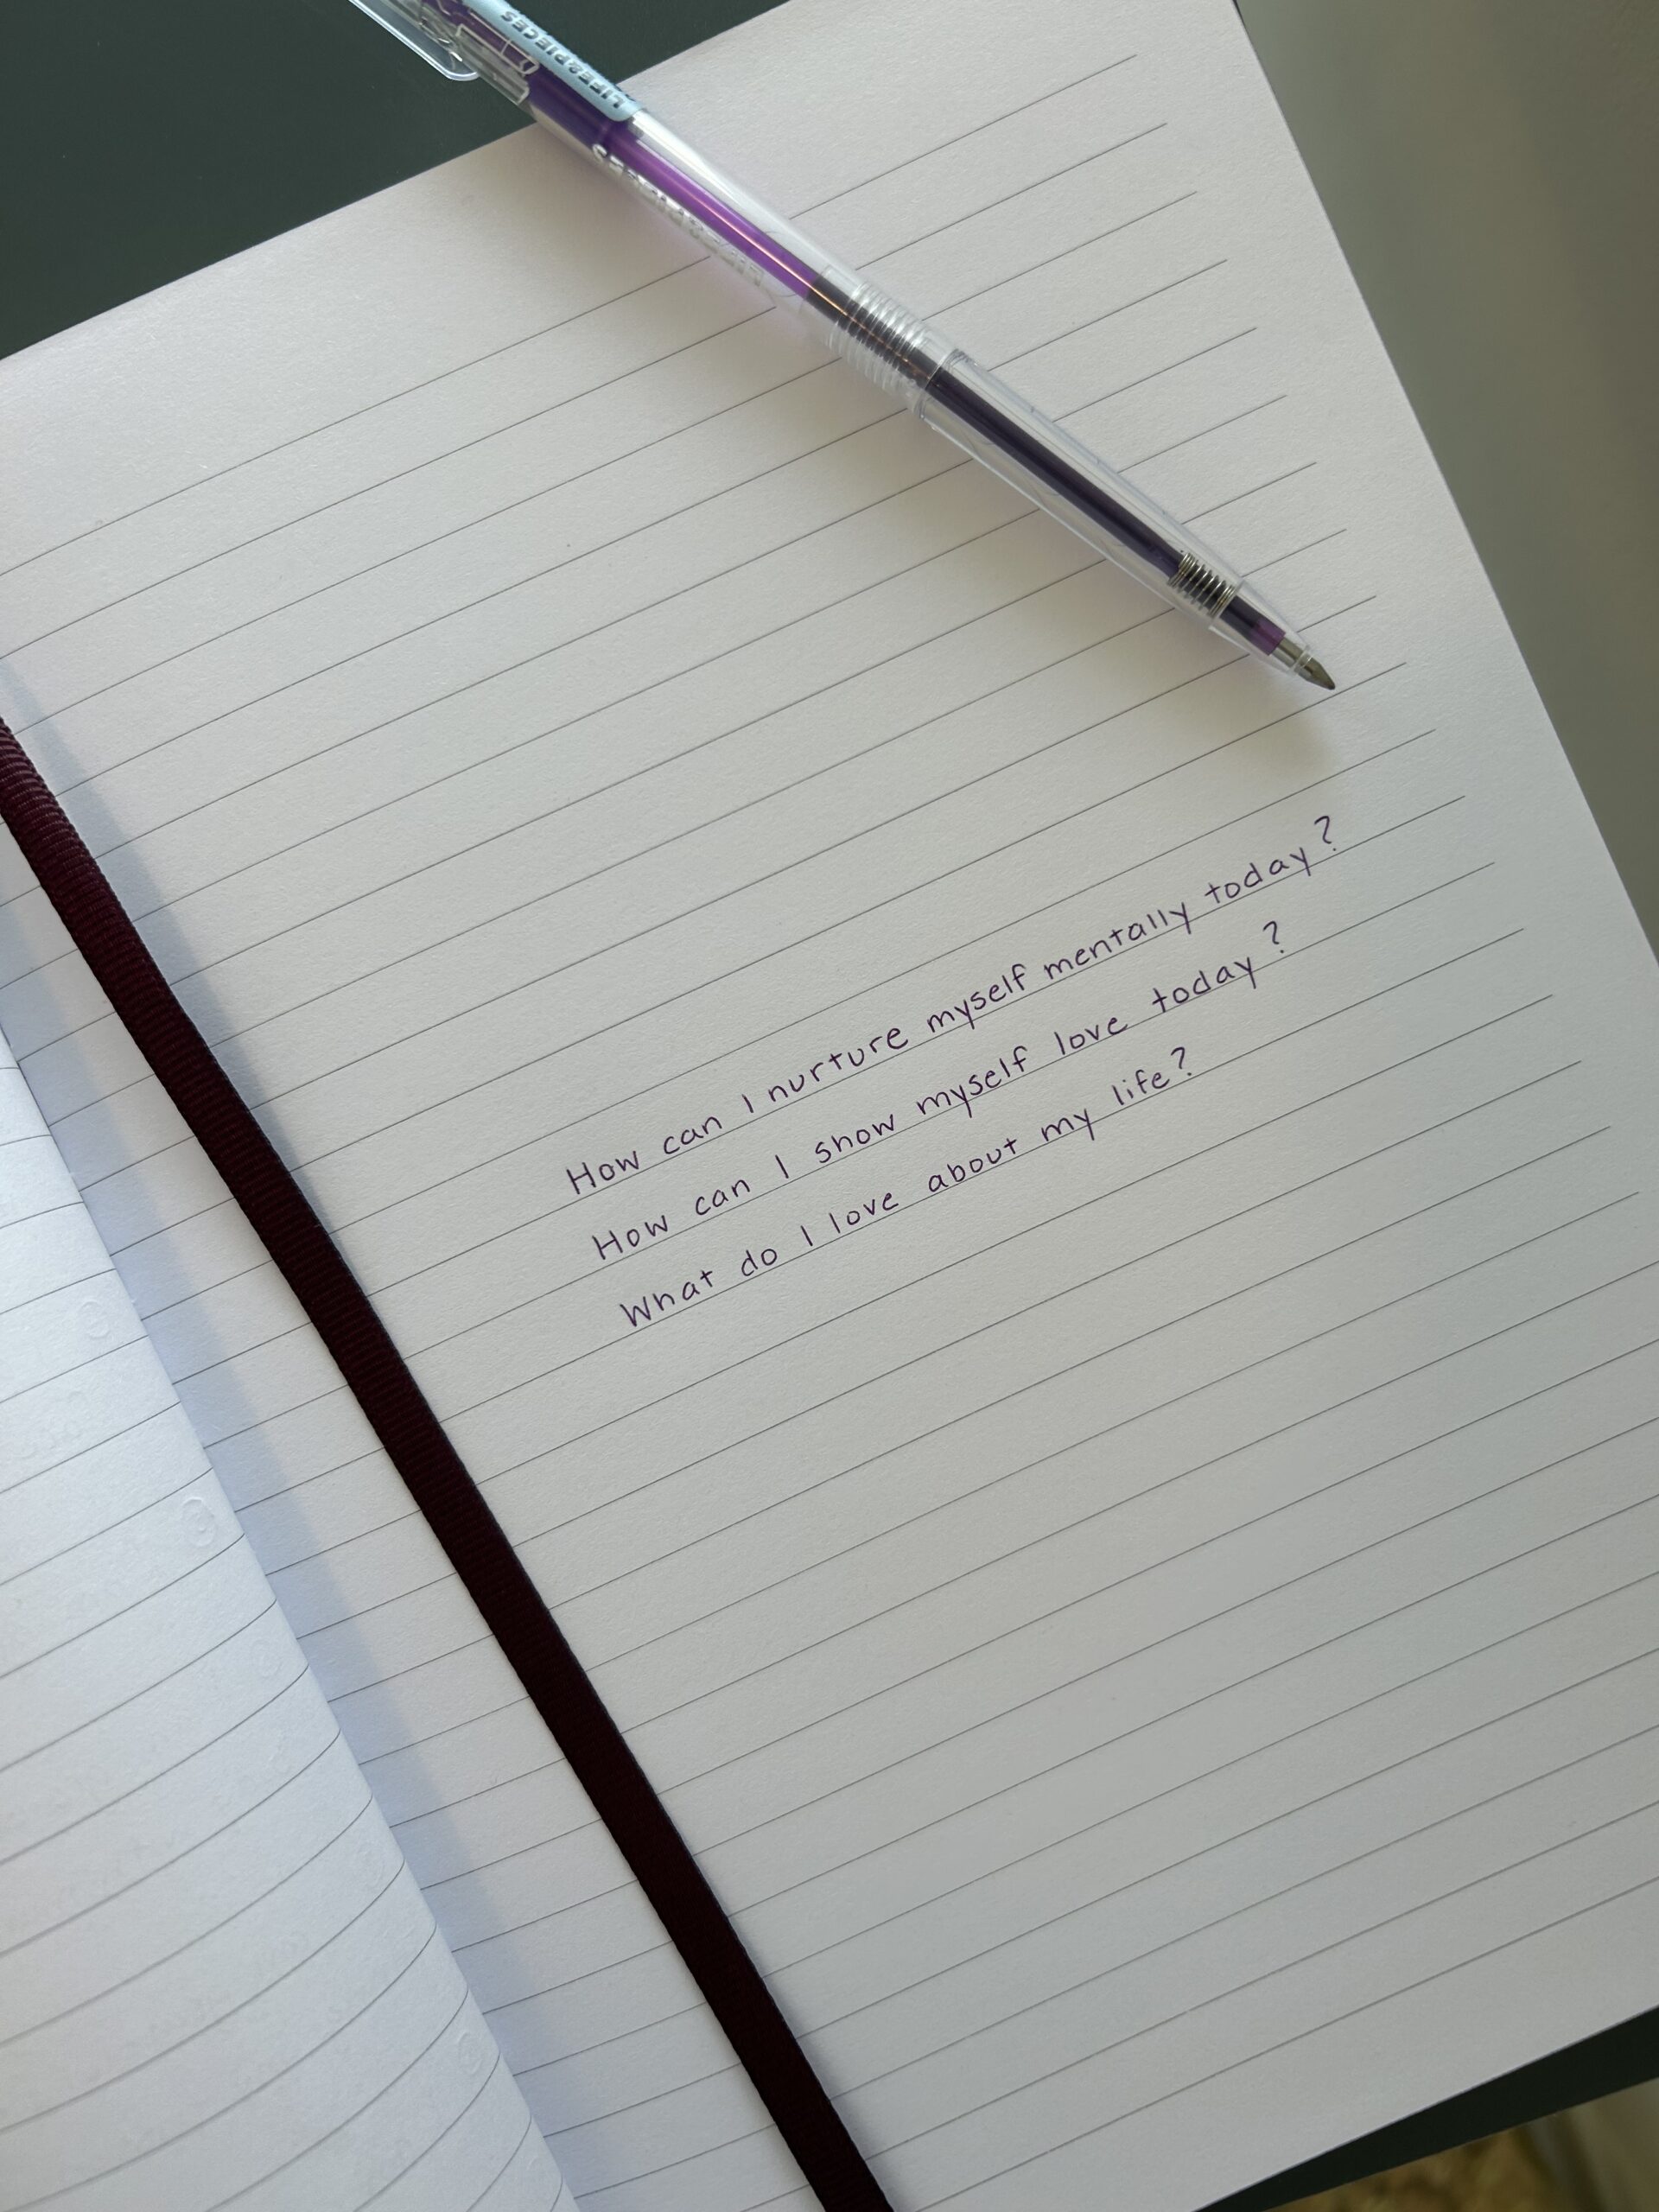 LIFE&PIECES
How can I nurture myself mentally today?
How can I show myself love today?
What do I love about my life?